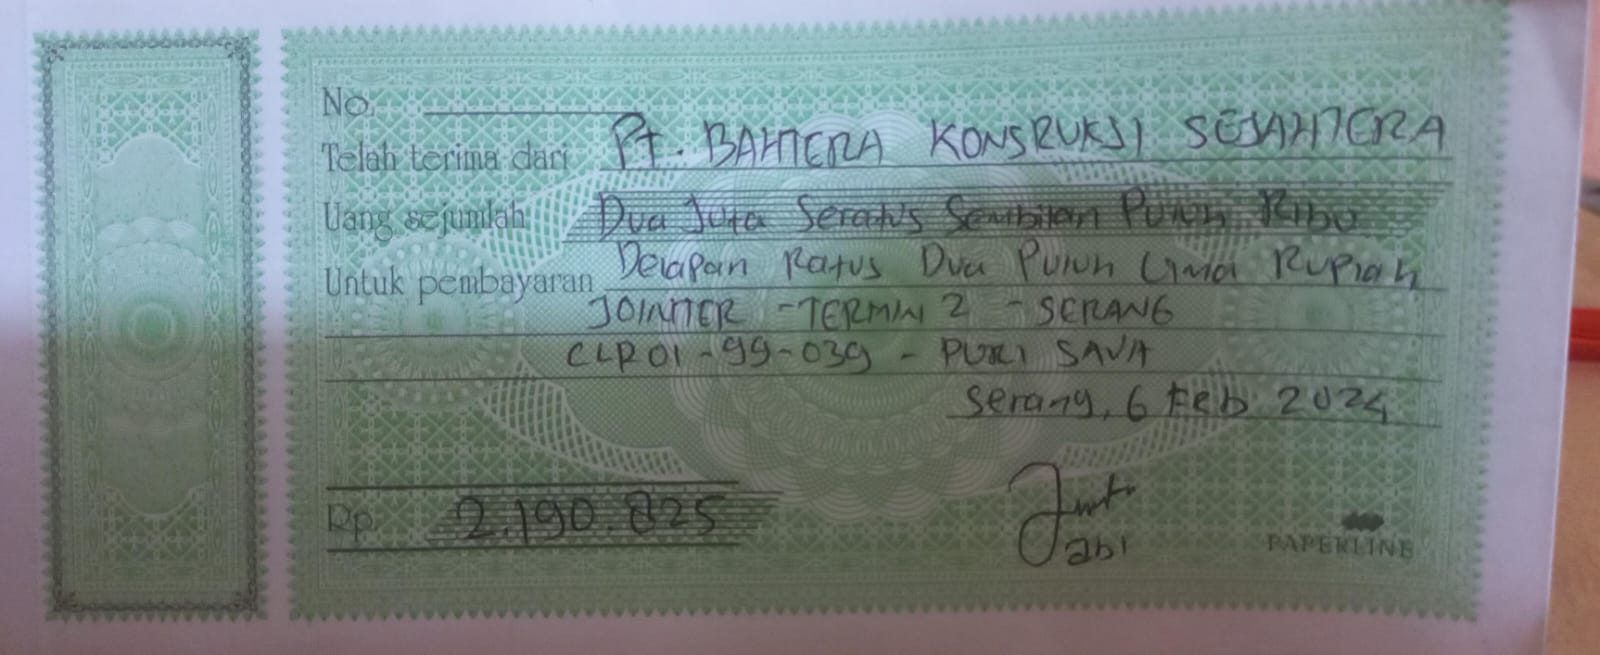 No.
Telah terima dari PT. BAHTERA KONSRUKSI SEJAHTERA
Uang sejumlah Dua Juta Seratus Sembilan Puluh Ribu
Untuk pembayaran Delapan Ratus Dua Puluh Lima Rupiah
JOINTER - TERMIN 2 - SERANG
CLP01-99-039 - PURI SAVA
Serang, 6 Feb 2024
Rp. 2.190.825
Jabi
PAPERLINE